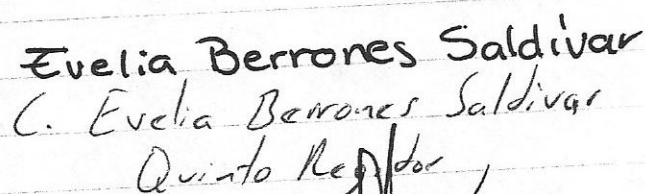 Evelia Berrones Saldívar
C. Evelia Berrones Saldivar
Quinto Regidor